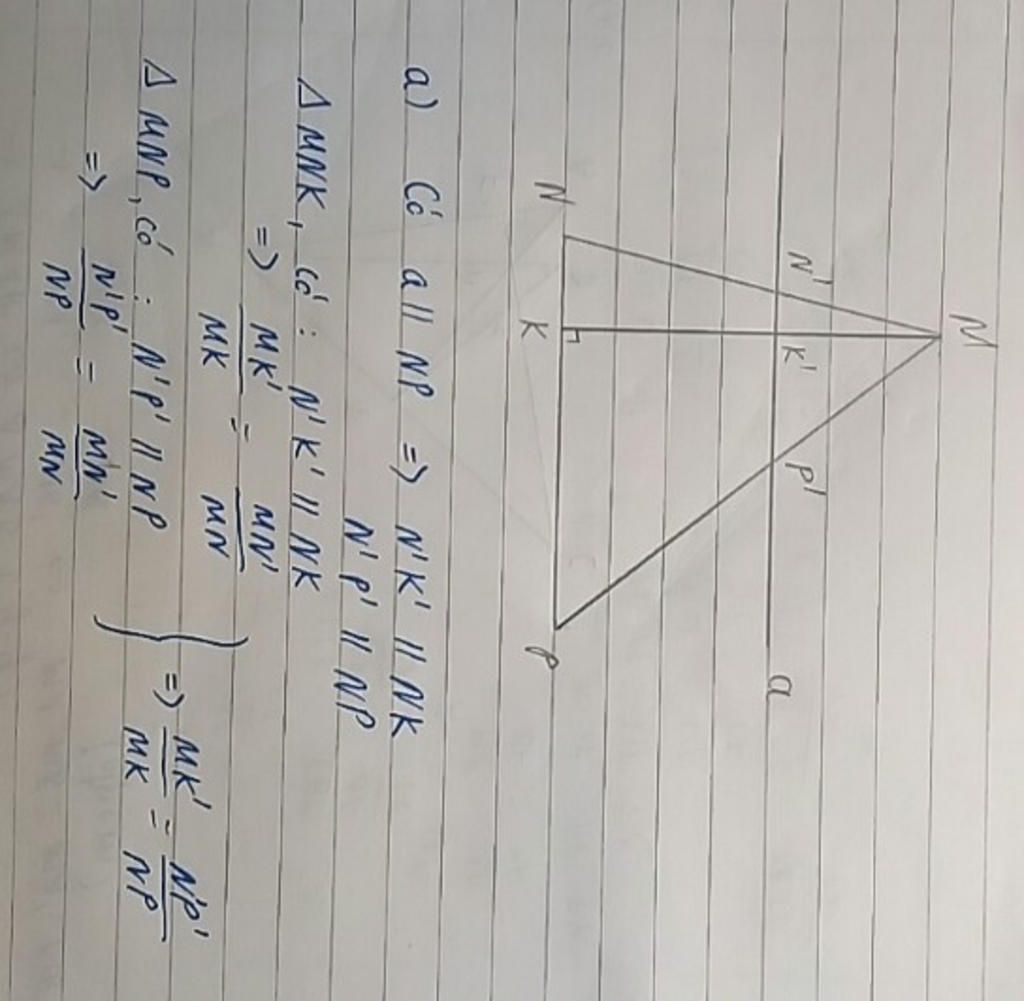 M
N' K' P' a
N K P
a) Có a // NP => N'K' // NK
N'P' // NP
Δ MNK, có : N'K' // NK
=> MK'/MK = MN'/MN
Δ MNP, có : N'P' // NP
=> N'P'/NP = MN'/MN
} => MK'/MK = N'P'/NP